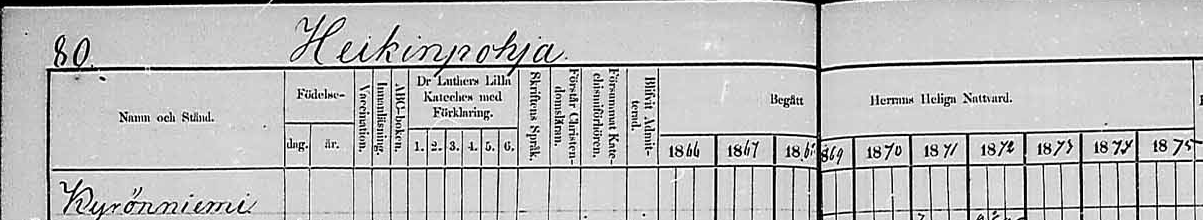 80. Heikinpohja.
Namn och Stånd.
Födelse-
dag. år.
Vaccination.
Innanläsning.
ABC-boken.
Dr Luthers Lilla
Kateches med
Förklaring.
1. 2. 3. 4. 5. 6.
Skriftens Språk.
Förstår Christen-
domsläran.
Försummat Kate-
chismiförhören.
Blifvit Admit-
terad.
Begått Herrans Heliga Nattvard.
1866 1867 186 869 1870 1871 1872 1873 1874 1875
Kyrönniemi